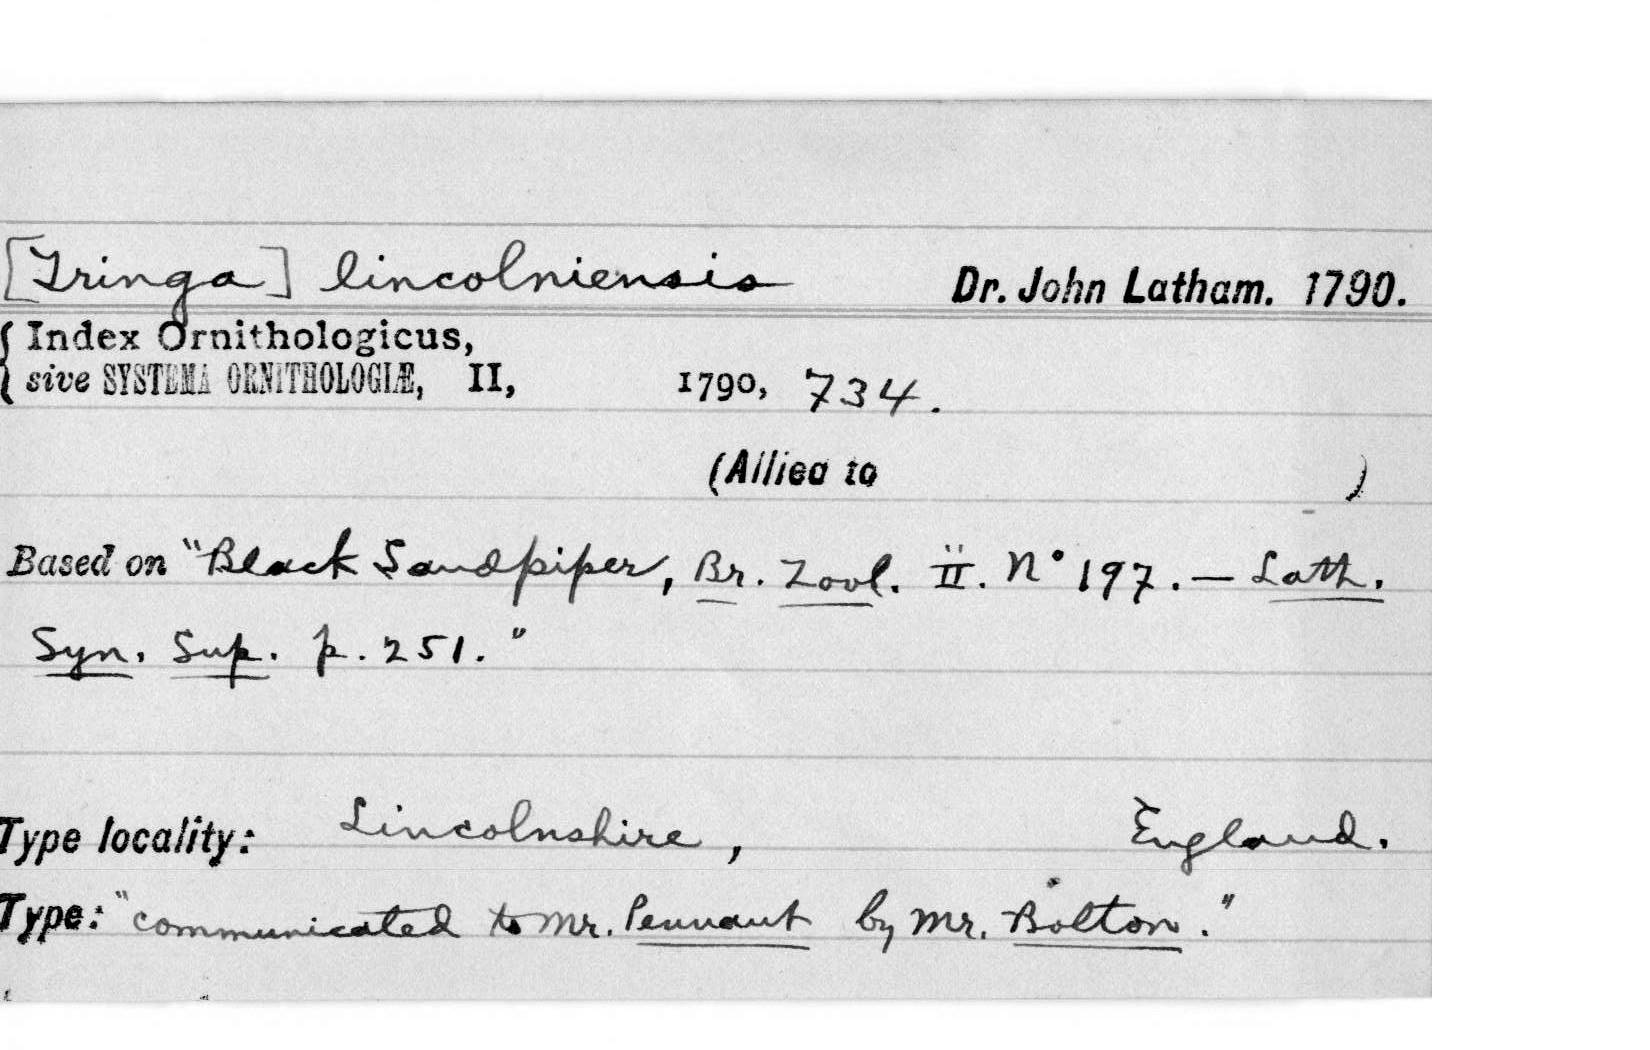 [Tringa] lincolniensis Dr. John Latham. 1790.
{ Index Ornithologicus,
sive SYSTEMA ORNITHOLOGIÆ, II, 1790, 734.
(Allied to )
Based on "Black Sandpiper, Br. Zool. ii. No 197. — Lath.
Syn. Sup. p. 251."
Type locality: Lincolnshire, England.
Type: "communicated to Mr. Pennant by Mr. Bolton."